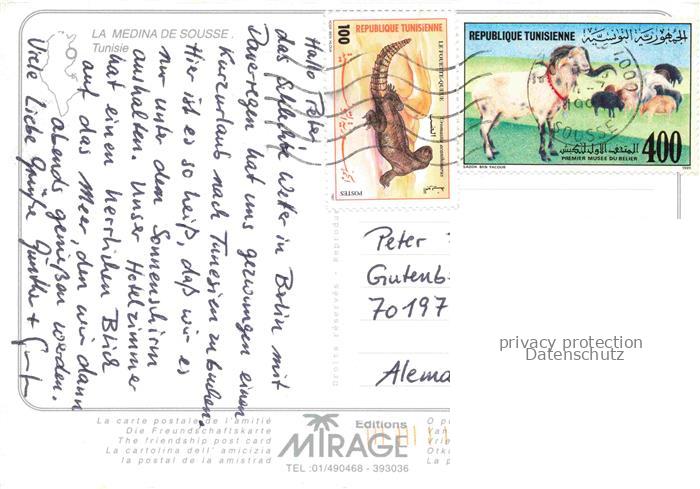 LA MEDINA DE SOUSSE.
Tunisie
Hallo Peter,
das schlechte Wetter in Berlin mit
Dauerregen hat uns gezwungen einen
Kurzurlaub nach Tunesien zu buchen.
Hier ist es so heiß, daß wir es
nur unter dem Sonnenschirm
aushalten. Unser Hotelzimmer
hat einen herrlichen Blick
auf das Meer, den wir dann
abends genießen werden.
Viele liebe Grüße Günther +
REPUBLIQUE TUNISIENNE
100
LE FOUETTE-QUEUE
Uromastix acanthinurus
POSTES
REPUBLIQUE TUNISIENNE
الجمهورية التونسية
المتحف الأول للكبش
PREMIER MUSEE DU BELIER
400
SOUSSE
Peter
Gutenb
70197
Alema
Droits réservés - Reprodu
privacy protection
Datenschutz
La carte postale de l'amitié
Die Freundschaftskarte
The friendship post card
La cartolina dell' amicizia
la postal de la amistrad
Editions
MIRAGE
TEL :01/490468 - 393036
O p
Van
Vrie
Otk
La p